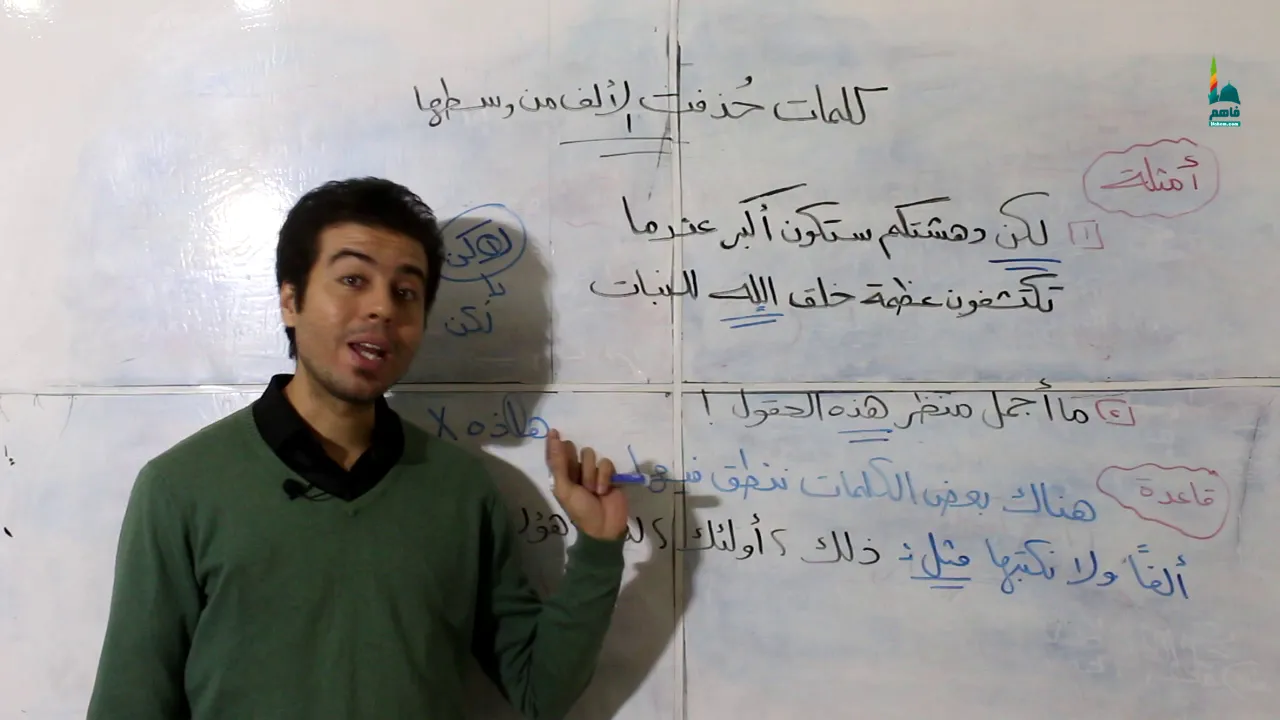 كلمات حُذفت الألف من وسطها
أمثلة
١ لكن دهشتكم ستكون أكبر عندما
تكتشفون عظمة خلق الله للنبات
لاكن
لا
كن
٢ ما أجمل منظر هذه الحقول !
هااذه X
قاعدة
هناك بعض الكلمات ننطق فيها
ألفًا ولا نكتبها مثل : ذلك ، أولئك ،
فاهم